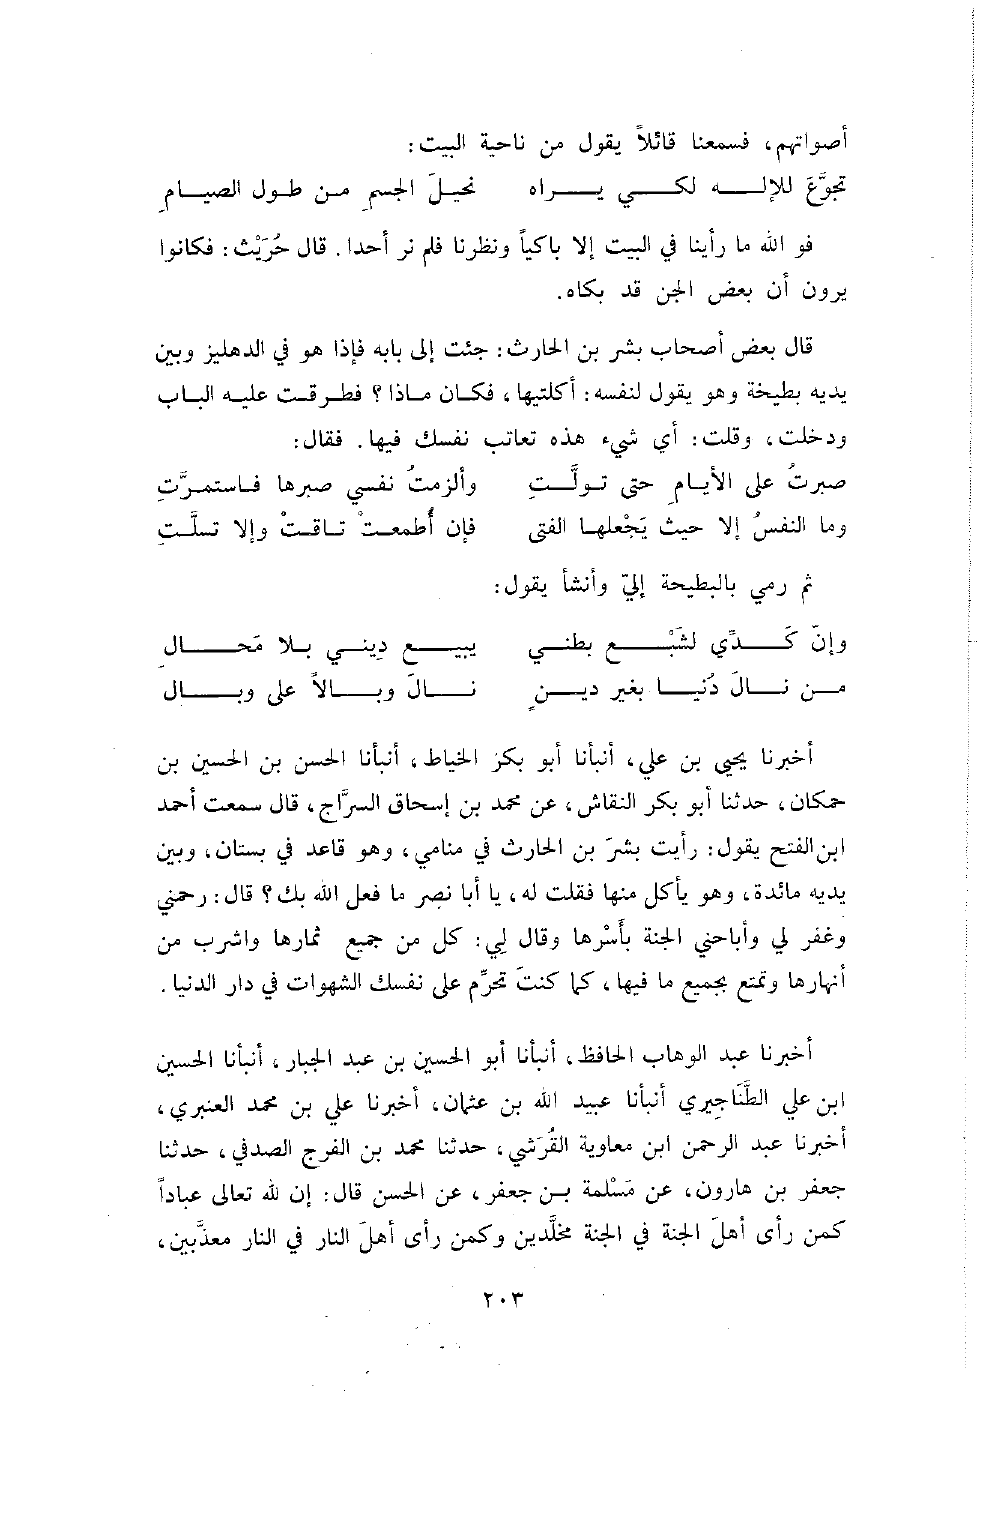 أصواتهم، فسمعنا قائلاً يقول من ناحية البيت:
تجوَّعَ للإلـــه لكـــي يـــراه نحيـلَ الجسـمِ مـن طـول الصيـامِ
فو الله ما رأينا في البيت إلا باكياً ونظرنا فلم نر أحدا. قال حُرَيْث: فكانوا
يرون أن بعض الجن قد بكاه.
قال بعض أصحاب بشر بن الحارث: جئت إلى بابه فإذا هو في الدهليز وبين
يديه بطيخة وهو يقول لنفسه: أكلتيها، فكـان مـاذا؟ فطـرقـت عليـه البـاب
ودخلت، وقلت: أي شيء هذه تعاتب نفسك فيها. فقال:
صبرتُ على الأيـامِ حتى تـولَّـتِ وألزمتُ نفسي صبرها فـاستمـرَّتِ
وما النفسُ إلا حيث يَجْعلهـا الفتى فإن أُطمعـتْ تـاقـتْ وإلا تسلَّـتِ
ثم رمي بالبطيحة إليّ وأنشأ يقول:
وإنّ كَـــدِّي لشَبْـــع بطنـــي يبيـــع دِينـــي بـلا مَحـــالِ
مـــن نـــالَ دُنيـــا بغير ديـــنٍ نـــالَ وبـــالاً على وبـــال
أخبرنا يحيى بن علي، أنبأنا أبو بكر الخياط، أنبأنا الحسن بن الحسين بن
حمكان، حدثنا أبو بكر النقاش، عن محمد بن إسحاق السرَّاج، قال سمعت أحمد
ابن الفتح يقول: رأيت بشرَ بن الحارث في منامي، وهو قاعد في بستان، وبين
يديه مائدة، وهو يأكل منها فقلت له، يا أبا نصر ما فعل الله بك؟ قال: رحمني
وغفر لي وأباحني الجنة بأَسْرها وقال لِي: كل من جميع ثمارها واشرب من
أنهارها وتمتع بجميع ما فيها، كما كنتَ تحرِّم على نفسك الشهوات في دار الدنيا.
أخبرنا عبد الوهاب الحافظ، أنبأنا أبو الحسين بن عبد الجبار، أنبأنا الحسين
ابن علي الطَّنَاجِيري أنبأنا عبيد الله بن عثمان، أخبرنا علي بن محمد العنبري،
أخبرنا عبد الرحمن ابن معاوية القُرَشي، حدثنا محمد بن الفرج الصدفي، حدثنا
جعفر بن هارون، عن مَسْلمة بـن جعفر، عن الحسن قال: إن لله تعالى عباداً
كمن رأى أهلَ الجنة في الجنة مخلَّدين وكمن رأى أهلَ النار في النار معذَّبين،
٢٠٣